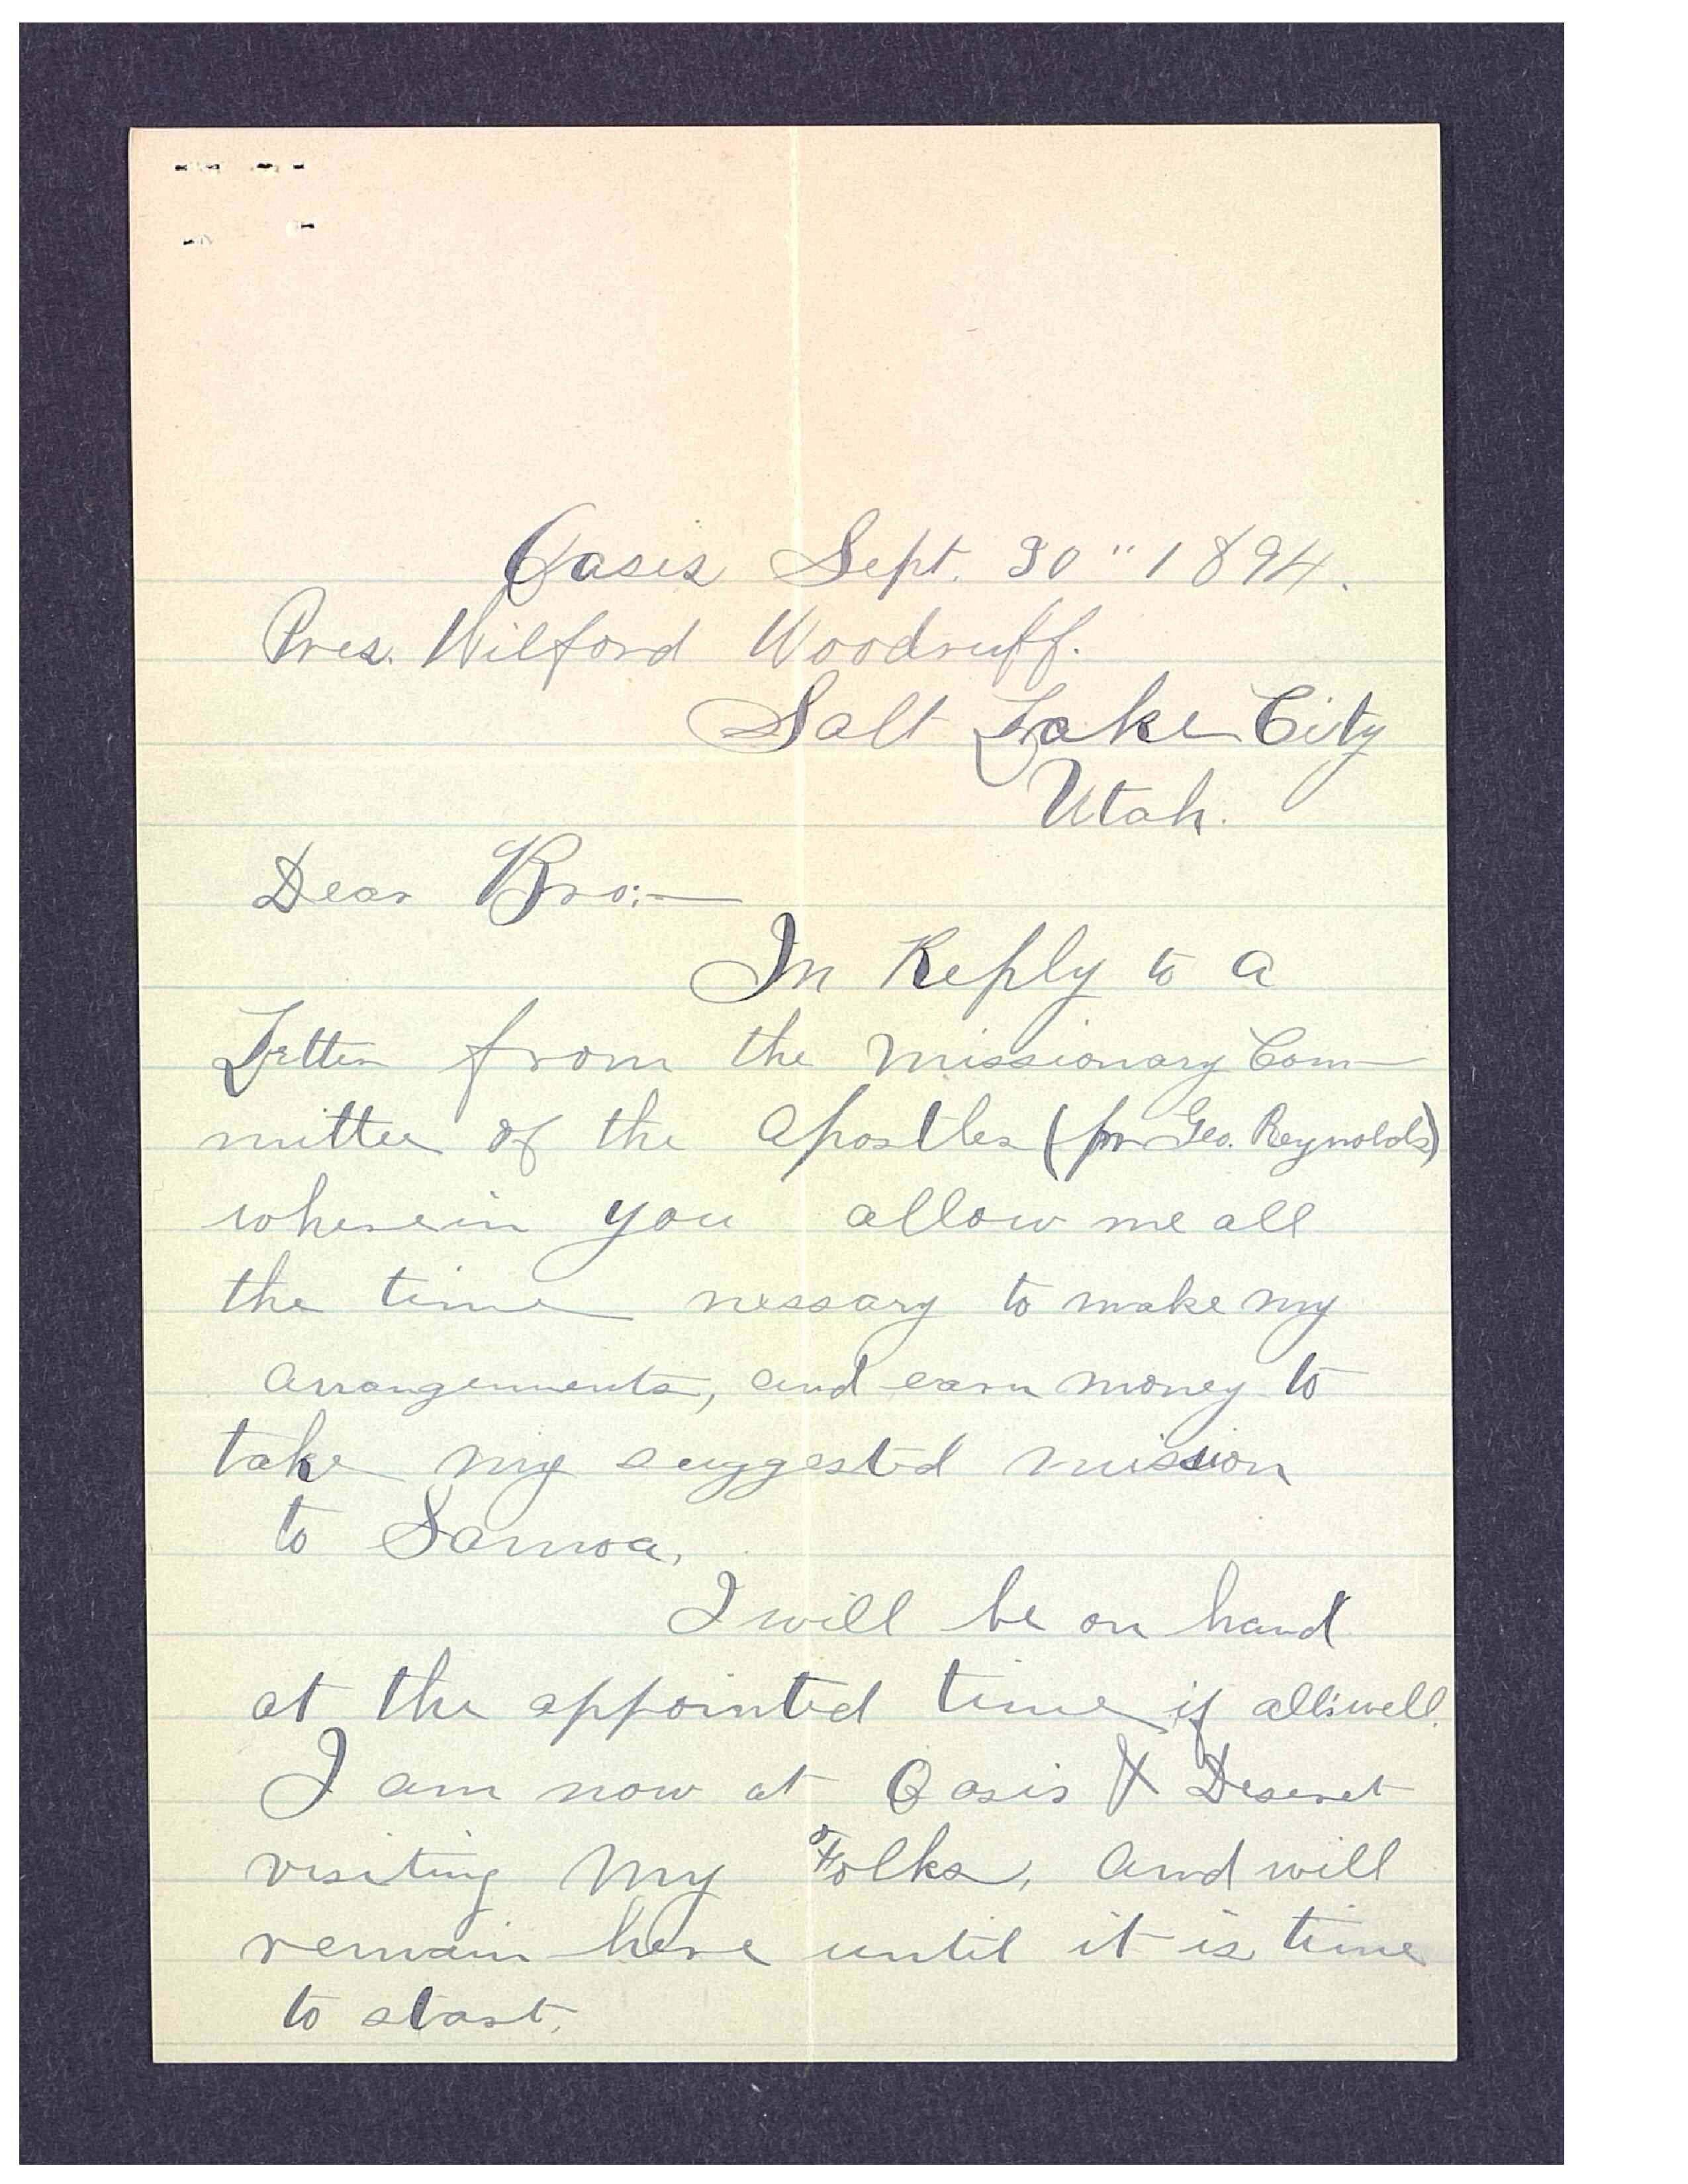 Oasis Sept. 30" 1894.
Pres. Wilford Woodruff.
Salt Lake City
Utah.
Dear Bro:—
In Reply to a
Letter from the Missionary Com-
mittee of the Apostles (pr Geo. Reynolds)
wherein you allow me all
the time nessary to make my
arrangements, and earn money to
take my suggested mission
to Samoa.
I will be on hand
at the appointed time if all's well.
I am now at Oasis & Deseret
visiting my Folks, and will
remain here until it is time
to start.